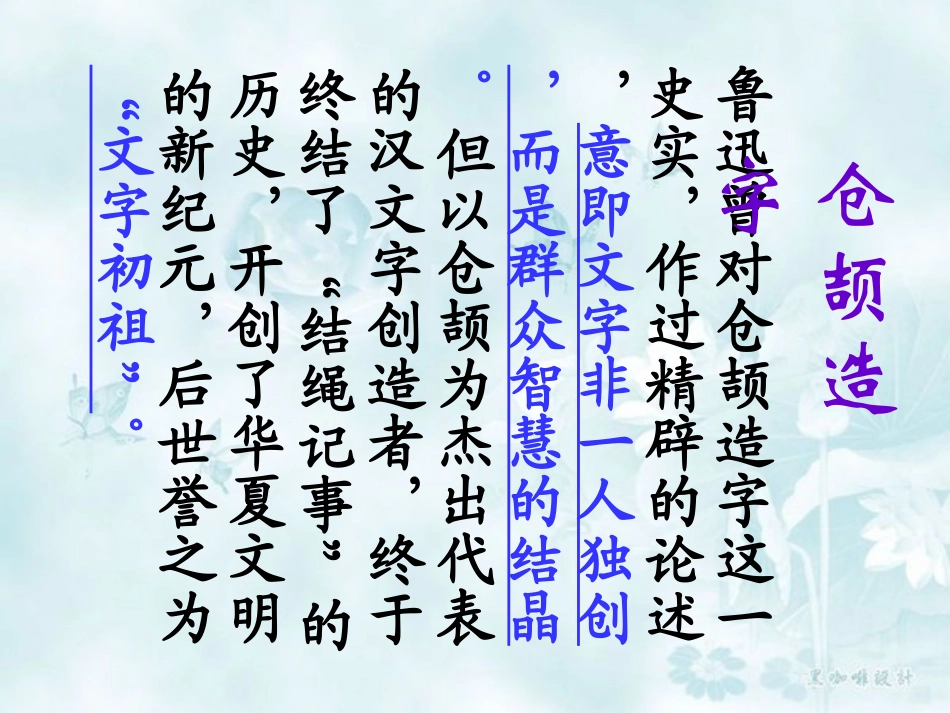 仓颉造
字
鲁迅曾对仓颉造字这一
史实，作过精辟的论述
，意即文字非一人独创
，而是群众智慧的结晶
。但以仓颉为杰出代表
的汉文字创造者，终于
终结了“结绳记事”的
历史，开创了华夏文明
的新纪元，后世誉之为
“文字初祖”。
黑咖啡設計